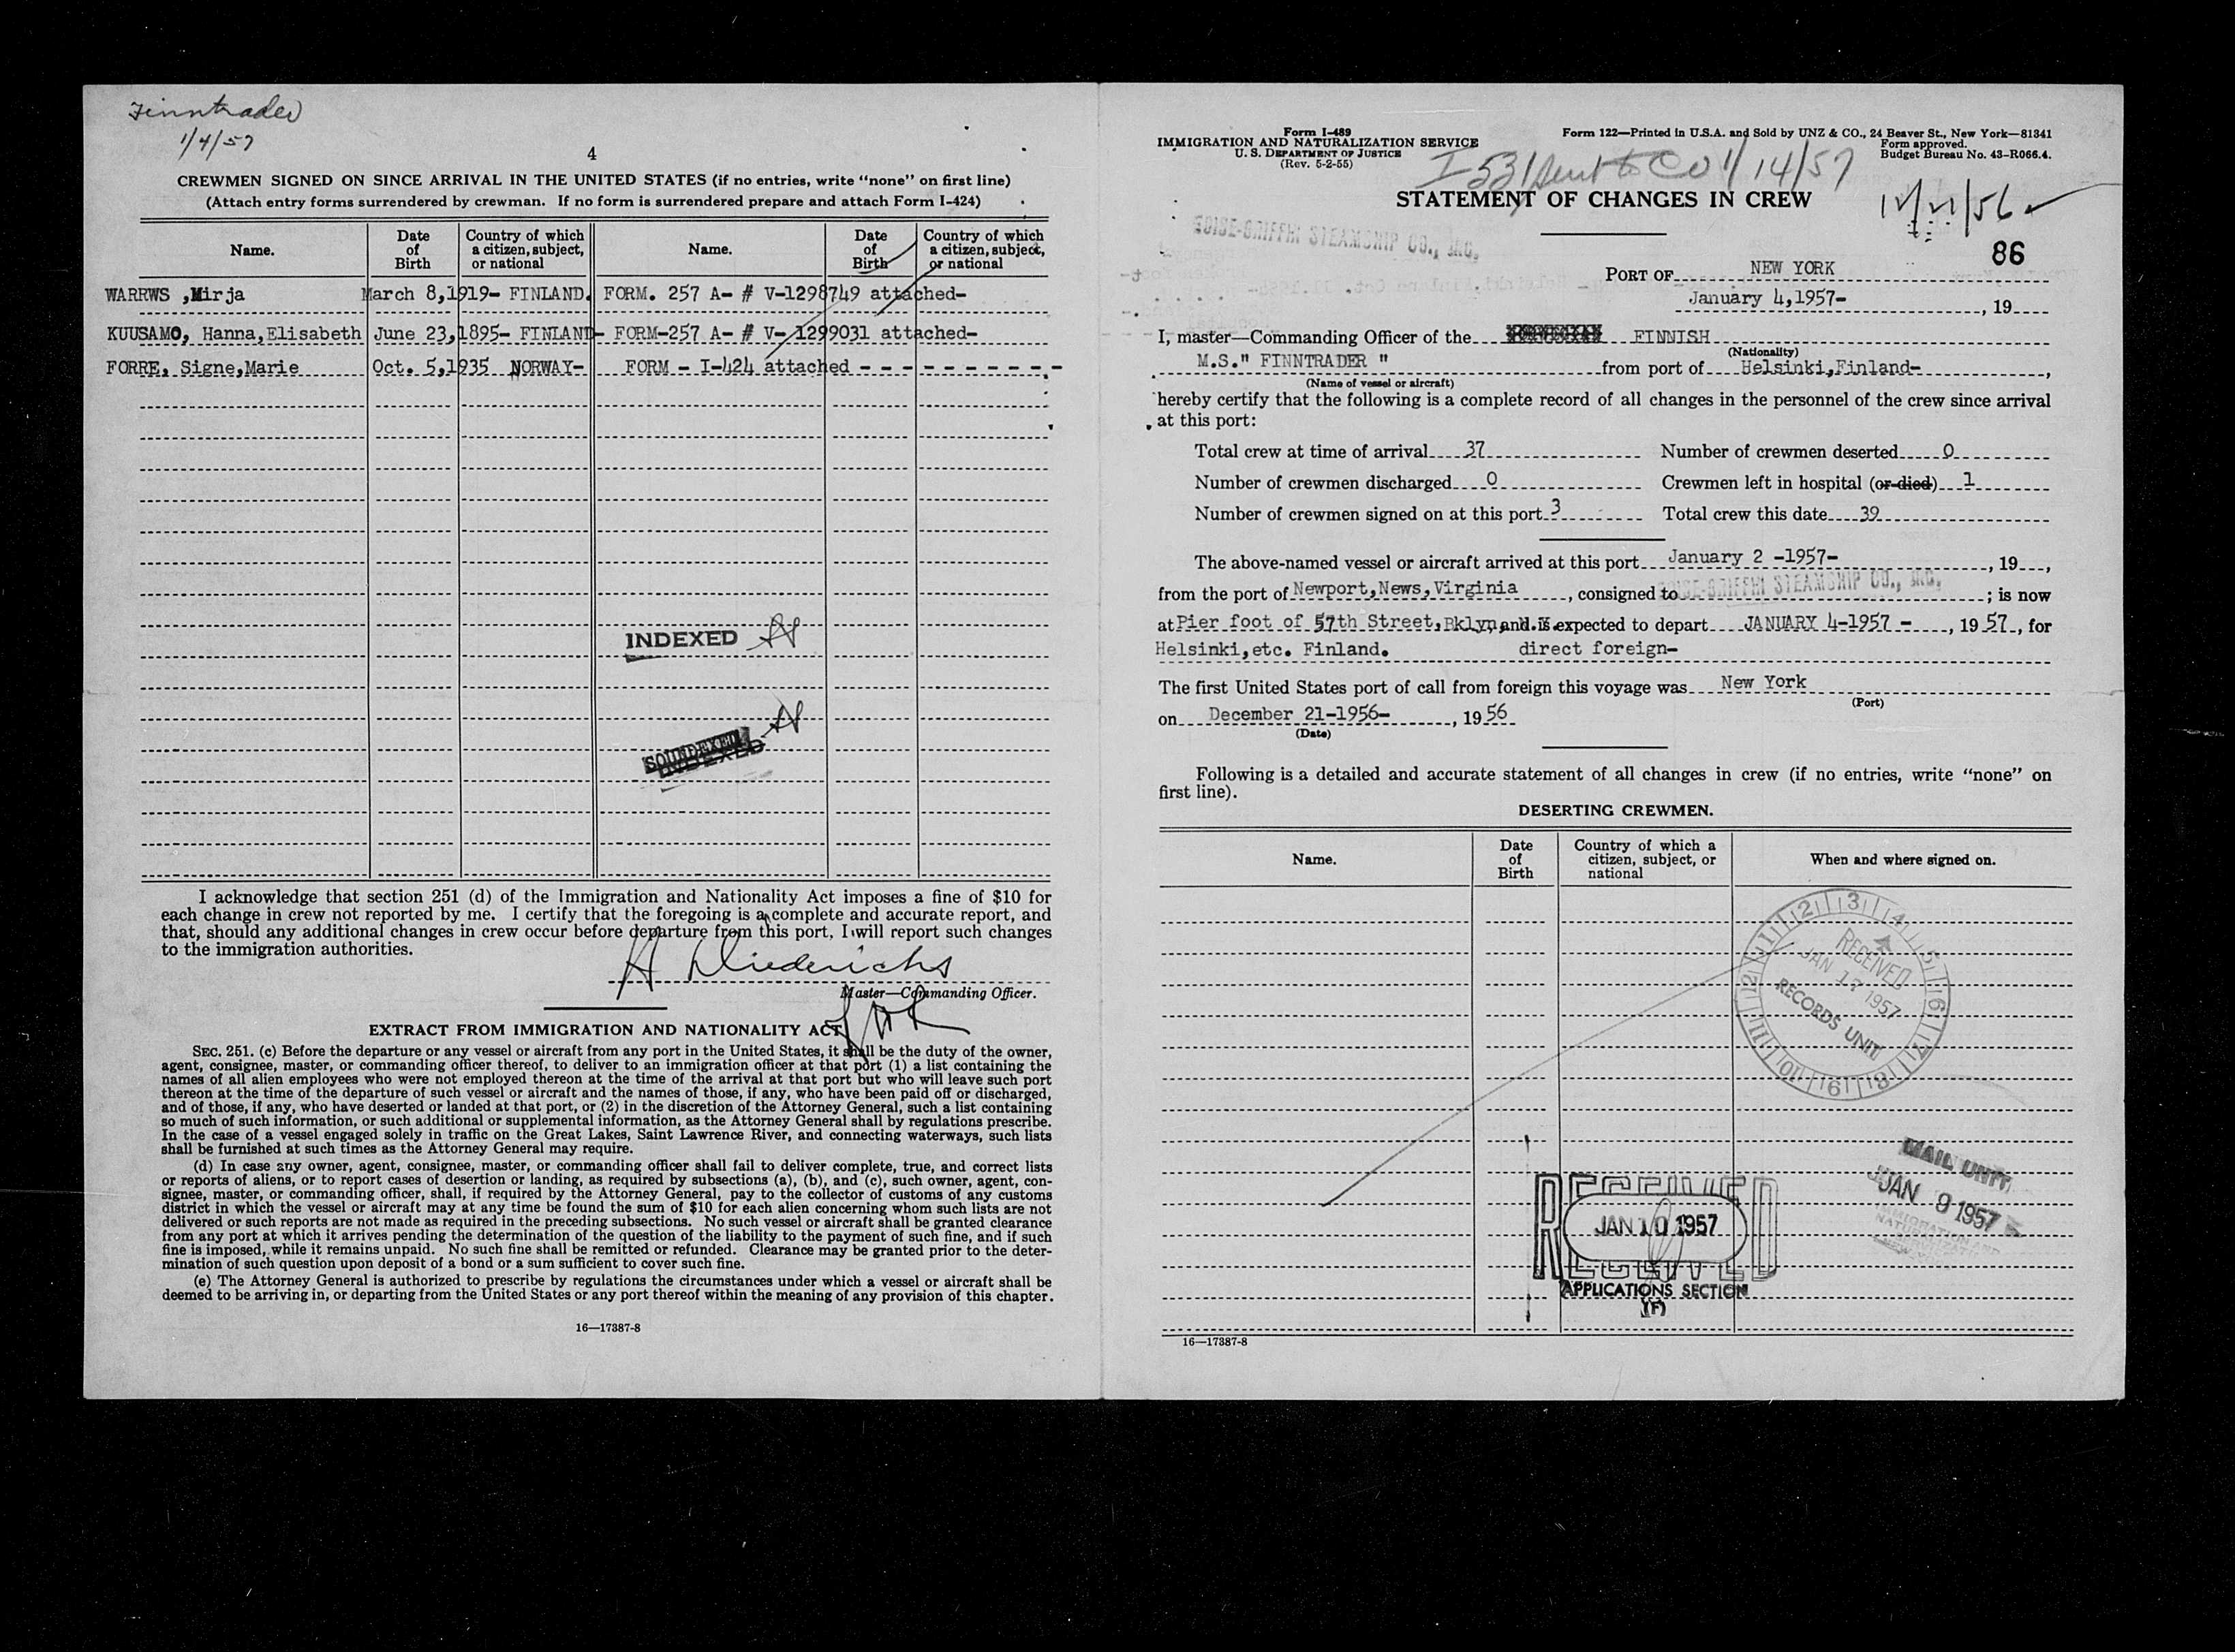 Finntrader
1/4/57
4
CREWMEN SIGNED ON SINCE ARRIVAL IN THE UNITED STATES (if no entries, write "none" on first line)
(Attach entry forms surrendered by crewman. If no form is surrendered prepare and attach Form I-424)
Name. Date of Birth Country of which a citizen, subject, or national Name. Date of Birth Country of which a citizen, subject, or national
WARRWS ,Mirja March 8,1919- FINLAND. FORM. 257 A- # V-1298749 attached-
KUUSAMO, Hanna,Elisabeth June 23,1895- FINLAND- FORM-257 A- # V- 1299031 attached-
FORRE, Signe,Marie Oct. 5,1935 NORWAY- FORM - I-424 attached - - - - - - - - - -
INDEXED
SOUNDEXED
INDEXED
I acknowledge that section 251 (d) of the Immigration and Nationality Act imposes a fine of $10 for
each change in crew not reported by me. I certify that the foregoing is a complete and accurate report, and
that, should any additional changes in crew occur before departure from this port, I will report such changes
to the immigration authorities.
H Diederichs
Master—Commanding Officer.
EXTRACT FROM IMMIGRATION AND NATIONALITY ACT
SEC. 251. (c) Before the departure or any vessel or aircraft from any port in the United States, it shall be the duty of the owner,
agent, consignee, master, or commanding officer thereof, to deliver to an immigration officer at that port (1) a list containing the
names of all alien employees who were not employed thereon at the time of the arrival at that port but who will leave such port
thereon at the time of the departure of such vessel or aircraft and the names of those, if any, who have been paid off or discharged,
and of those, if any, who have deserted or landed at that port, or (2) in the discretion of the Attorney General, such a list containing
so much of such information, or such additional or supplemental information, as the Attorney General shall by regulations prescribe.
In the case of a vessel engaged solely in traffic on the Great Lakes, Saint Lawrence River, and connecting waterways, such lists
shall be furnished at such times as the Attorney General may require.
(d) In case any owner, agent, consignee, master, or commanding officer shall fail to deliver complete, true, and correct lists
or reports of aliens, or to report cases of desertion or landing, as required by subsections (a), (b), and (c), such owner, agent, con-
signee, master, or commanding officer, shall, if required by the Attorney General, pay to the collector of customs of any customs
district in which the vessel or aircraft may at any time be found the sum of $10 for each alien concerning whom such lists are not
delivered or such reports are not made as required in the preceding subsections. No such vessel or aircraft shall be granted clearance
from any port at which it arrives pending the determination of the question of the liability to the payment of such fine, and if such
fine is imposed, while it remains unpaid. No such fine shall be remitted or refunded. Clearance may be granted prior to the deter-
mination of such question upon deposit of a bond or a sum sufficient to cover such fine.
(e) The Attorney General is authorized to prescribe by regulations the circumstances under which a vessel or aircraft shall be
deemed to be arriving in, or departing from the United States or any port thereof within the meaning of any provision of this chapter.
16—17387-8
Form I-489
IMMIGRATION AND NATURALIZATION SERVICE
U. S. DEPARTMENT OF JUSTICE
(Rev. 5-2-55)
Form 122—Printed in U.S.A. and Sold by UNZ & CO., 24 Beaver St., New York—81341
Form approved.
Budget Bureau No. 43-R066.4.
I 531 sent to CO 1/14/57
STATEMENT OF CHANGES IN CREW
12/21/56
BOISE-GRIFFIN STEAMSHIP CO., INC.
86
PORT OF NEW YORK
January 4,1957- , 19
I, master—Commanding Officer of the FINNISH
(Nationality)
M.S." FINNTRADER " from port of Helsinki,Finland- ,
(Name of vessel or aircraft)
hereby certify that the following is a complete record of all changes in the personnel of the crew since arrival
at this port:
Total crew at time of arrival 37 Number of crewmen deserted 0
Number of crewmen discharged 0 Crewmen left in hospital (or died) 1
Number of crewmen signed on at this port 3 Total crew this date 39
The above-named vessel or aircraft arrived at this port January 2 -1957- , 19 ,
from the port of Newport,News,Virginia , consigned to BOISE-GRIFFIN STEAMSHIP CO., INC. ; is now
at Pier foot of 57th Street,Bklyn and is expected to depart JANUARY 4-1957 - , 19 57 , for
Helsinki,etc. Finland. direct foreign-
The first United States port of call from foreign this voyage was New York
(Port)
on December 21-1956- , 19 56
(Date)
Following is a detailed and accurate statement of all changes in crew (if no entries, write "none" on
first line).
DESERTING CREWMEN.
Name. Date of Birth Country of which a citizen, subject, or national When and where signed on.
RECEIVED
JAN 17 1957
RECORDS UNIT
1 2 3 4 5 6 7 8 9 10 11 12
MAIL UNIT
JAN 9 1957
IMMIGRATION AND
RECEIVED
JAN 10 1957
RECEIVED
APPLICATIONS SECTION
(F)
16—17387-8